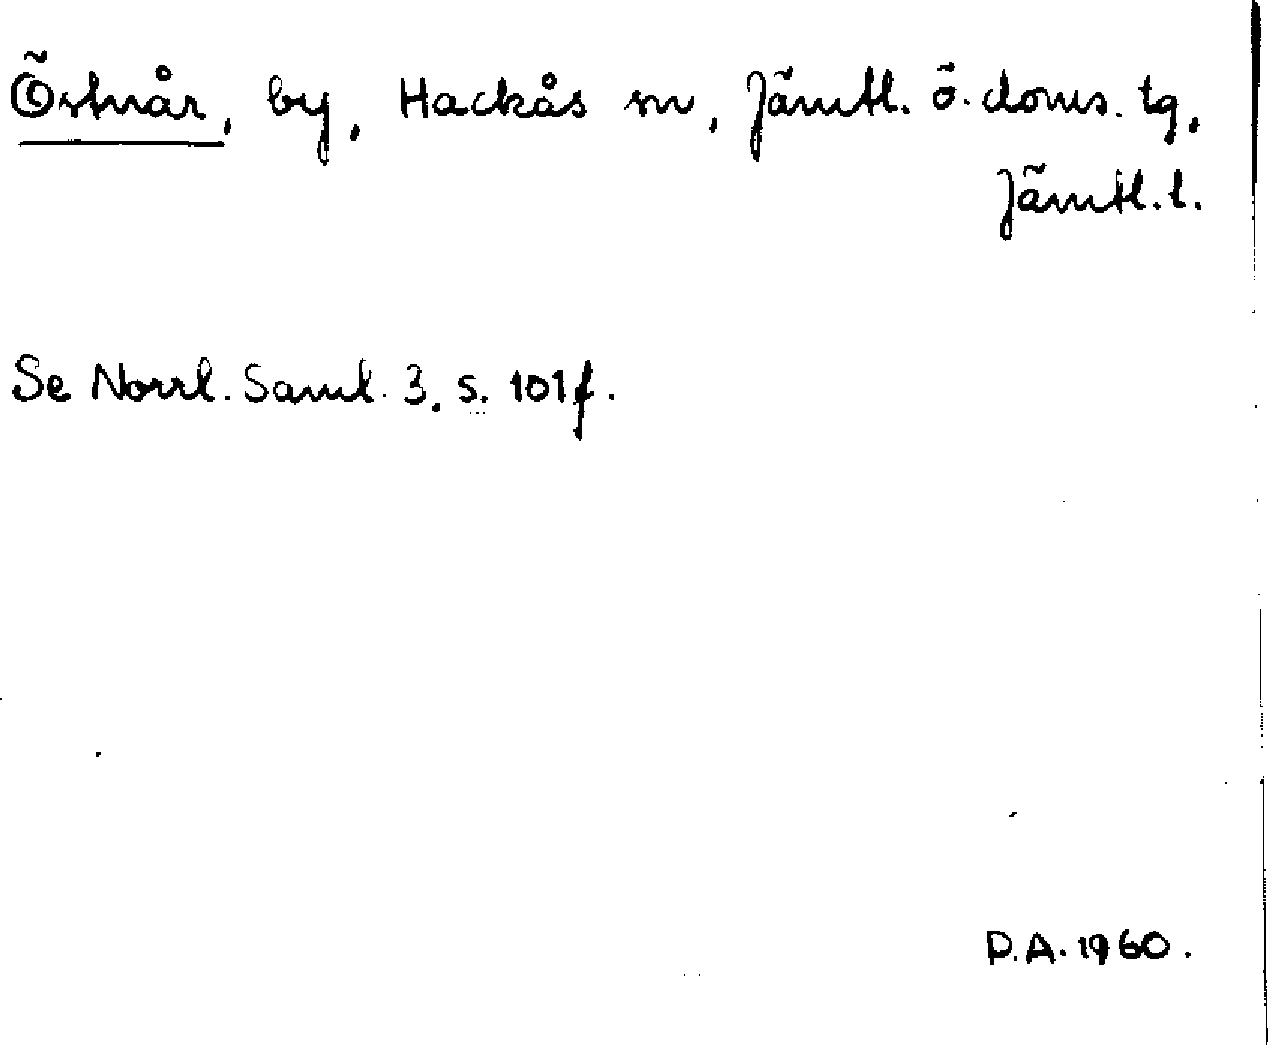 Östnår, by, Hackås sn, Jämtl. ö. doms. tg,
Jämtl. l.
Se Norrl. Saml. 3. s. 101 f.
D.A. 1960.